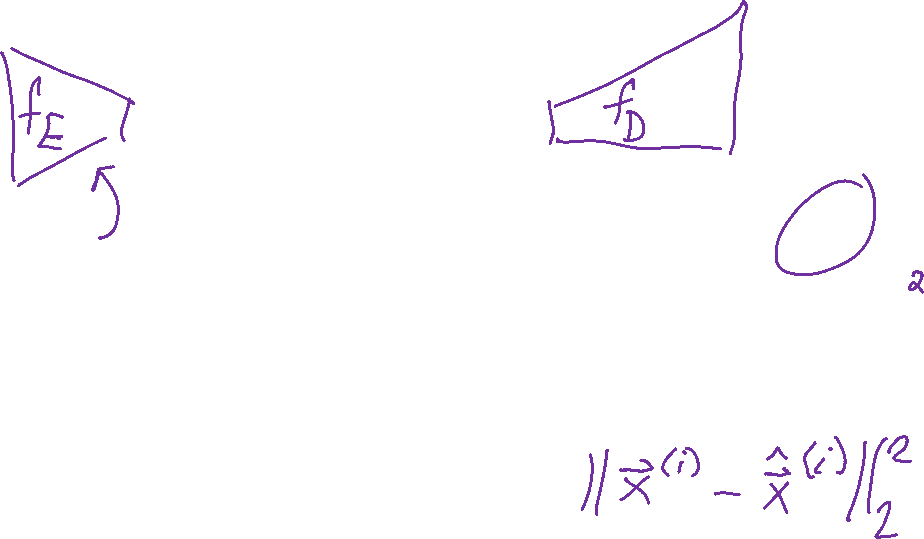 f_E
f_D
2
‖x⃗^(i) − x̂⃗^(i)‖₂²